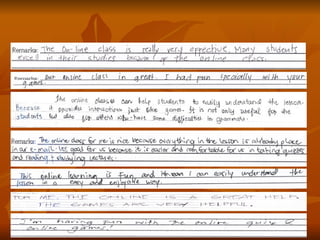 Remarks: The On-line class is really very effective. Many students
excell in their studies because of the on-line class.
Remarks: Our online class is great. I had fun specially with your
games.
The online classes can help students to easily understand the lesson.
Because it provides interaction just like games. It is not only useful for the
students but also for others who have some difficulties in grammars.
Remarks: The online class for me is nice because everything in the lesson is already place
in our e-mail. It's good for us because it is easier and comfortable for us in taking quizzes
and reading & studying lectures.
This online learning is fun, and I can easily understand the
lesson in a easy and enjoyable way.
FOR ME, THE ONLINE IS A GREAT HELP.
THE GAMES ARE VERY HELPFUL.
I'm having fun with the online quiz &
online games!